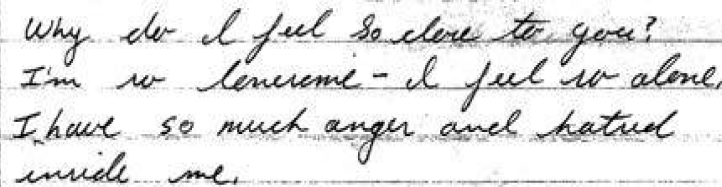 Why do I feel so close to you?
I'm so lonesome - I feel so alone.
I have so much anger and hatred
inside me.